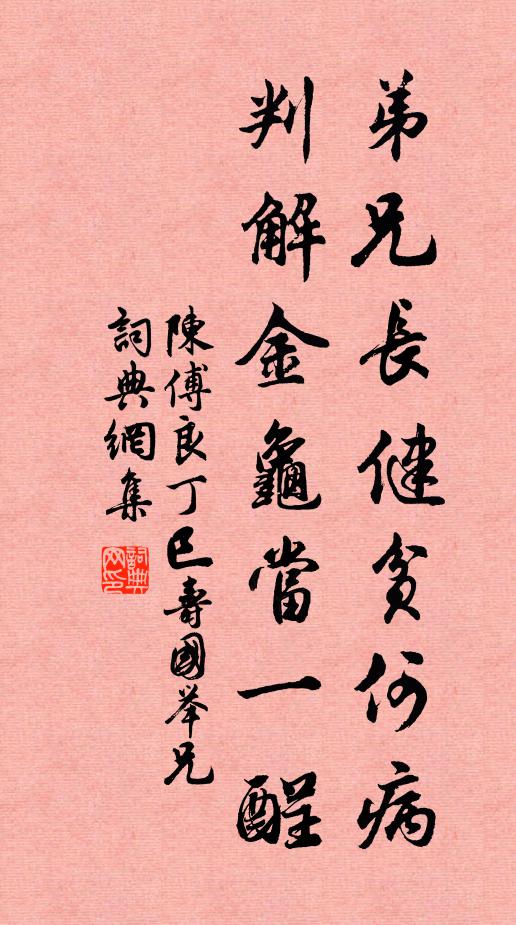 弟兄長健貧何病
判解金龜當一酲
陳傅良丁巳壽國举兄
詞典網集
詞典网印